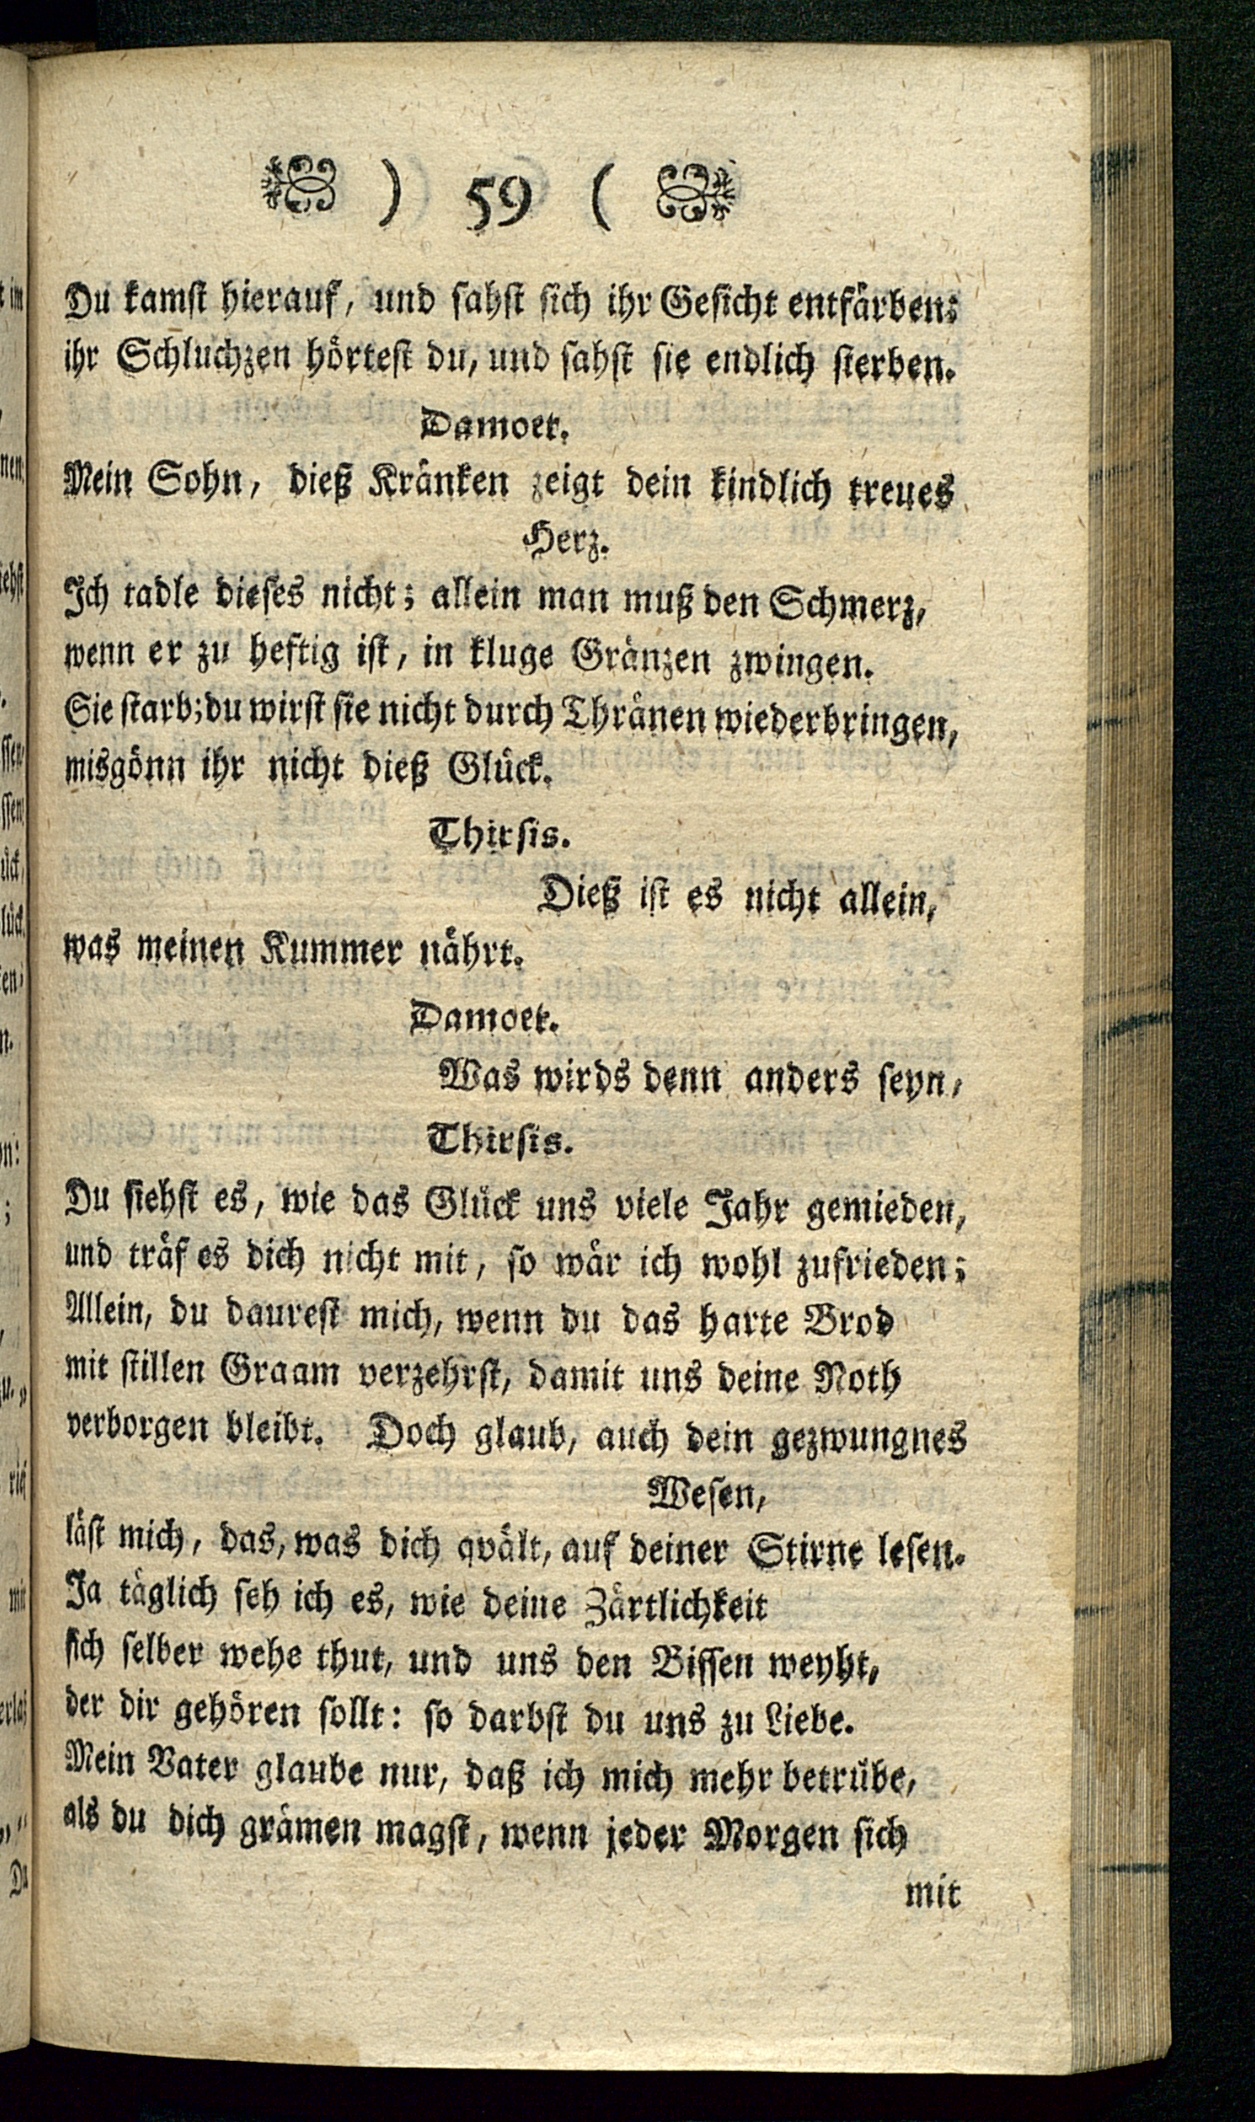 ) 59 (
Du kamst hierauf, und sahst sich ihr Gesicht entfärben;
ihr Schluchzen hörtest du, und sahst sie endlich sterben.
Damoet.
Mein Sohn, dieß Kränken zeigt dein kindlich treues
Herz.
Ich tadle dieses nicht; allein man muß den Schmerz,
wenn er zu heftig ist, in kluge Gränzen zwingen.
Sie starb; du wirst sie nicht durch Thränen wiederbringen,
misgönn ihr nicht dieß Glück.
Thirsis.
Dieß ist es nicht allein,
was meinen Kummer nährt.
Damoet.
Was wirds denn anders seyn,
Thirsis.
Du siehst es, wie das Glück uns viele Jahr gemieden,
und träf es dich nicht mit, so wär ich wohl zufrieden;
Allein, du daurest mich, wenn du das harte Brod
mit stillen Graam verzehrst, damit uns deine Noth
verborgen bleibt. Doch glaub, auch dein gezwungnes
Wesen,
läst mich, das, was dich qvält, auf deiner Stirne lesen.
Ja täglich seh ich es, wie deine Zärtlichkeit
sich selber wehe thut, und uns den Bissen weyht,
der dir gehören sollt: so darbst du uns zu Liebe.
Mein Vater glaube nur, daß ich mich mehr betrübe,
als du dich grämen magst, wenn jeder Morgen sich
mit